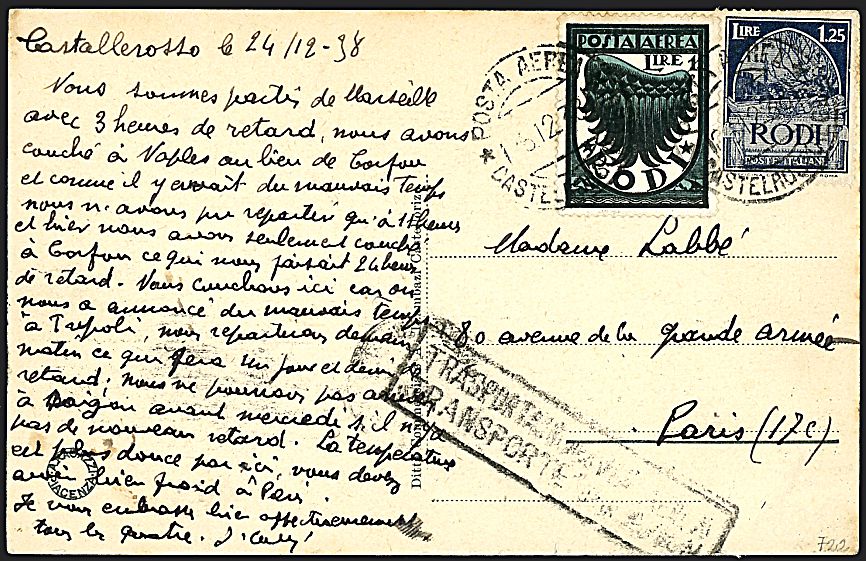 Castallerosso le 24/12-38
Nous sommes partis de Marseille
avec 3 heures de retard, nous avons
couché à Naples au lieu de Corfou
et comme il y avait du mauvais temps
nous n'avons pu repartir qu'à 11 heures
et hier nous avons seulement couché
à Corfou ce qui nous faisait 24 heures
de retard. Nous couchons ici car on
nous a annoncé du mauvais temps
à Tripoli, nous repartirons demain
matin ce qui fera un jour et demi de
retard; nous ne pourrons pas arriver
à Saigon avant mercredi s'il n'y a
pas de nouveau retard. La température
est plus douce par ici, vous devez
avoir bien froid à Paris.
Je vous embrasse bien affectueusement
tous les quatre.
POSTA AEREA
LIRE 1
RODI
LIRE 1.25
RODI
POSTE ITALIANE
POSTA AEREA
Madame Labbé
80 avenue de la grande armée
Paris (17e)
TRASPORTE
TRANSPORTE PAR AVION
Ditta
PIACENZA
722